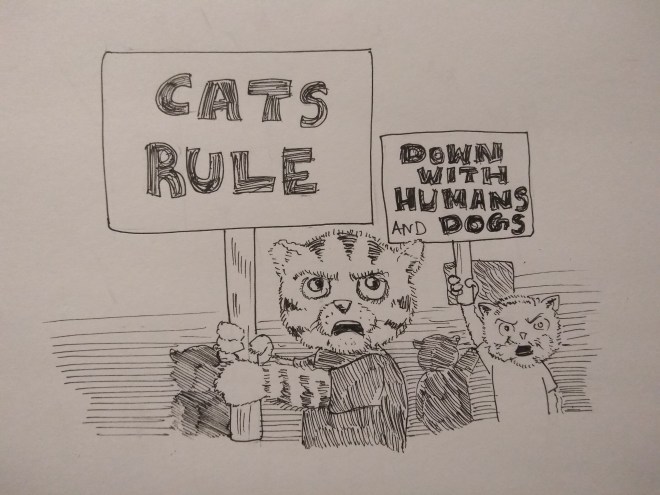 CATS
RULE
DOWN
WITH
HUMANS
AND DOGS